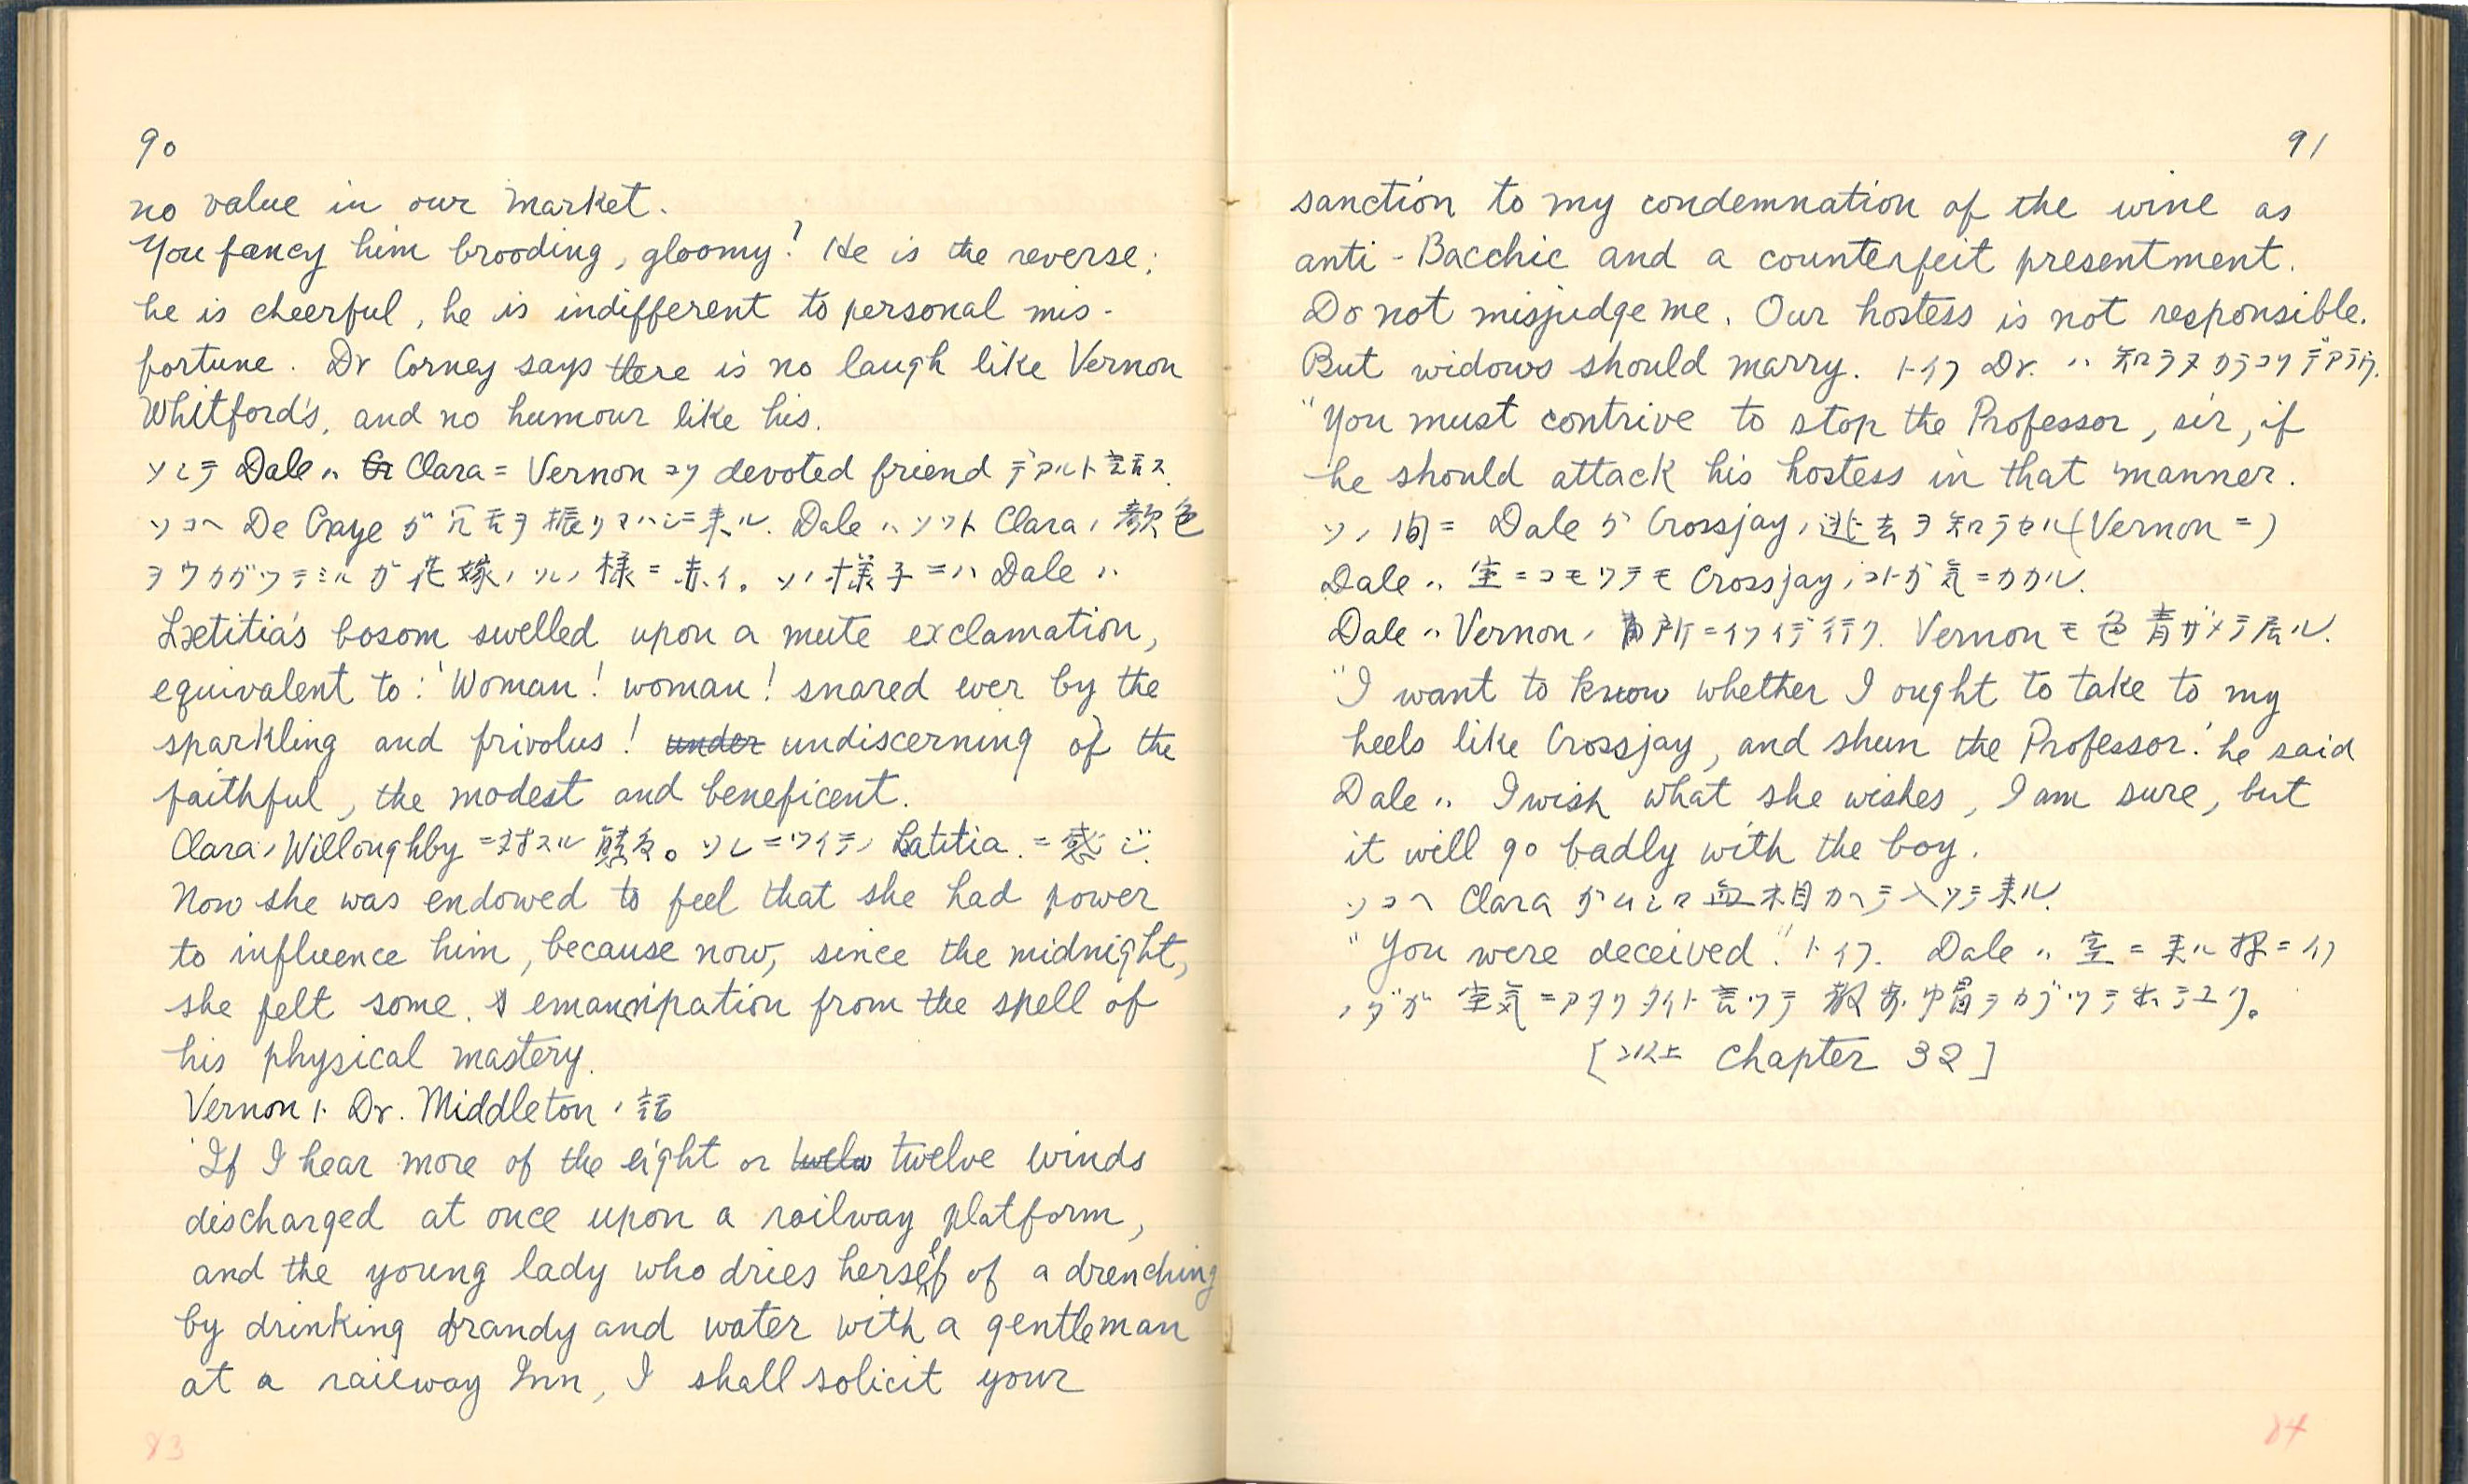 90
no value in our market.
You fancy him brooding, gloomy? He is the reverse;
he is cheerful, he is indifferent to personal mis-
fortune. Dr Corney says there is no laugh like Vernon
Whitford's, and no humour like his.
ソシテ Dale ハ Clara ニ Vernon コソ devoted friend デアルト
ソコヘ De Craye ガ 冗言ヲ振リマハシニ来ル. Dale ハ ソット Clara ノ 顔色
ヲウカガツテミルガ花嫁ノソレノ様ニ赤イ。ソノ様子ニハ Dale ハ
Lætitia's bosom swelled upon a mute exclamation,
equivalent to: 'Woman! woman! snared ever by the
sparkling and frivolus! under undiscerning of the
faithful, the modest and beneficent.
Clara ノ Willoughby ニ対スル 。ソレニツイテノ Latitia ニ感ジ.
Now she was endowed to feel that she had power
to influence him, because now, since the midnight,
she felt some emancipation from the spell of
his physical mastery.
Vernon ト Dr. Middleton ノ 話
'If I hear more of the eight or twelve winds
discharged at once upon a railway platform,
and the young lady who dries herself of a drenching
by drinking brandy and water with a gentleman
at a railway Inn, I shall solicit your
83
91
sanction to my condemnation of the wine as
anti-Bacchic and a counterfeit presentment.
Do not misjudge me. Our hostess is not responsible.
But widows should marry. トイフ Dr. ハ 知ラヌカラコソデアラウ.
"You must contrive to stop the Professor, sir, if
he should attack his hostess in that manner.
ソノ間ニ Dale ガ Crossjay ノ逃去ヲ知ラセル (Vernon ニ)
Dale ハ 室ニコモツテモ Crossjay ノコトガ気ニカカル.
Dale ハ Vernon ノ 所ニイソイデ行ク. Vernon モ色青ザメテ居ル.
"I want to know whether I ought to take to my
heels like Crossjay, and shun the Professor.' he said
Dale ハ I wish what she wishes, I am sure, but
it will go badly with the boy.
ソコヘ Clara ガムシロ血相カヘテ入ツテ来ル.
"You were deceived." トイフ. Dale ハ 室ニ来ル様ニイフ
ノダガ 空気ニアタリタイト言ツテ 散歩帽ヲカブツテ出テユク。
[以上 Chapter 32]
84